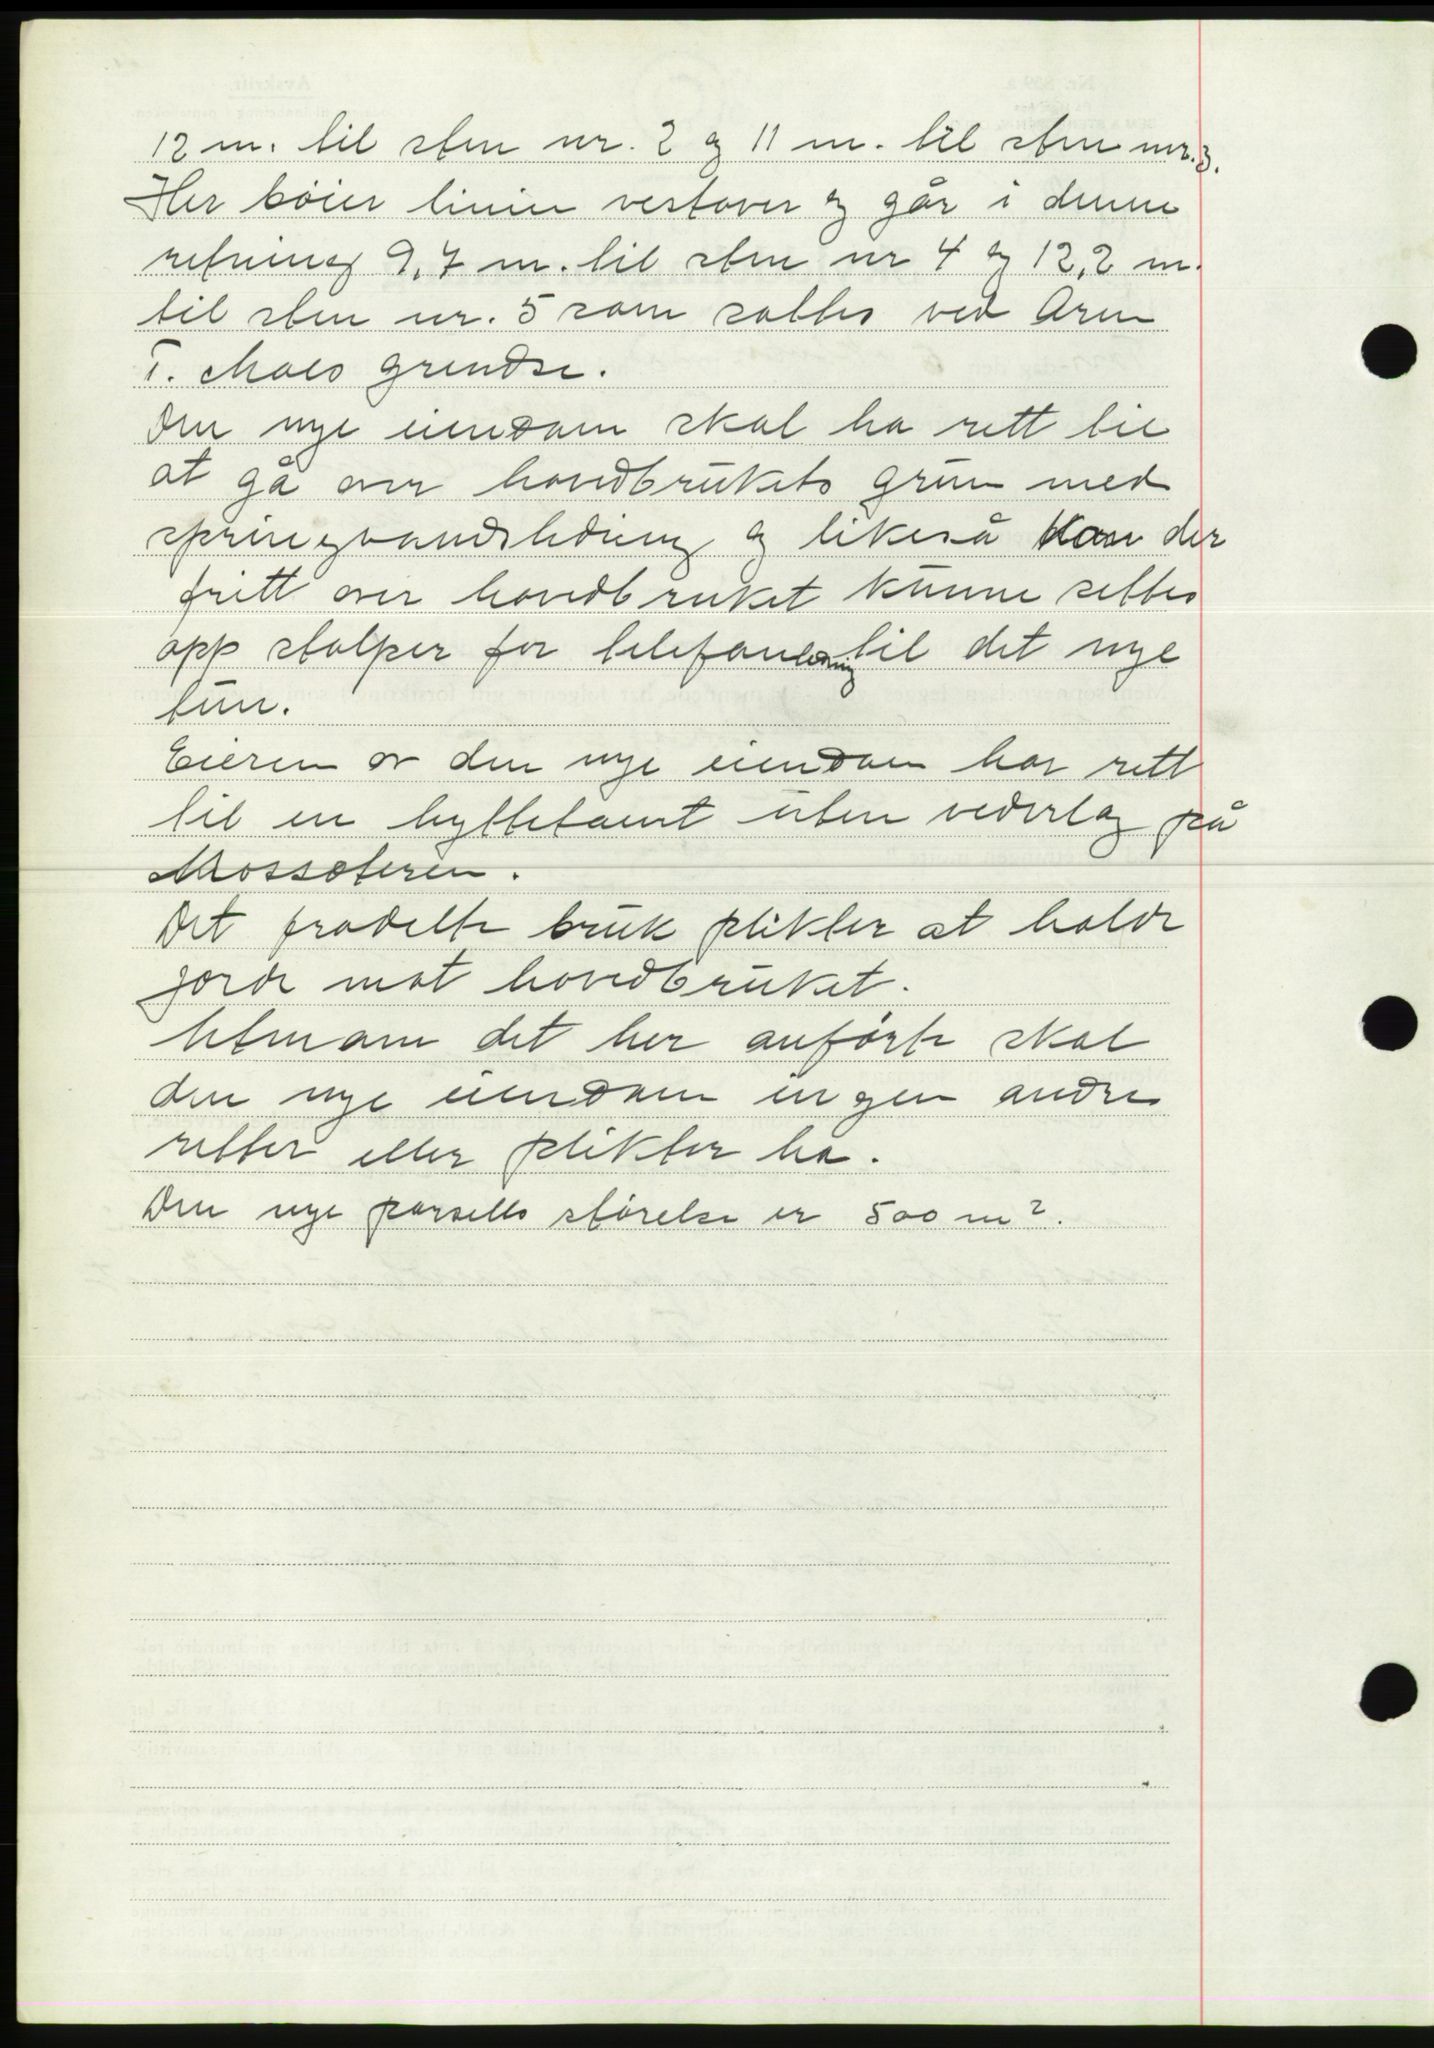 12 m. til sten nr. 2 og 11 m. til sten nr. 3.
Her böier linien vestover og går i denne
retning 9,7 m. til sten nr 4 og 12,2 m.
til sten nr. 5 som sattes ved Arne
T. Moes grendse.
Den nye eiendom skal ha rett til
at gå over hovedbrükets grün med
springvandsledning og likeså der
fritt over hovedbruket künne settes
opp stolper for telefonledning til det nye
tün.
Eieren av den nye eiendom har rett
til en hyttetomt üten vederlag på
Mossæteren.
Det fradelte brük plikter at holde
gjerde mot hovedbrüket.
Utenom det her anførte skal
den nye eiendom ingen andre
retter eller plikter ha.
Den nye parsells störelse er 500 m².